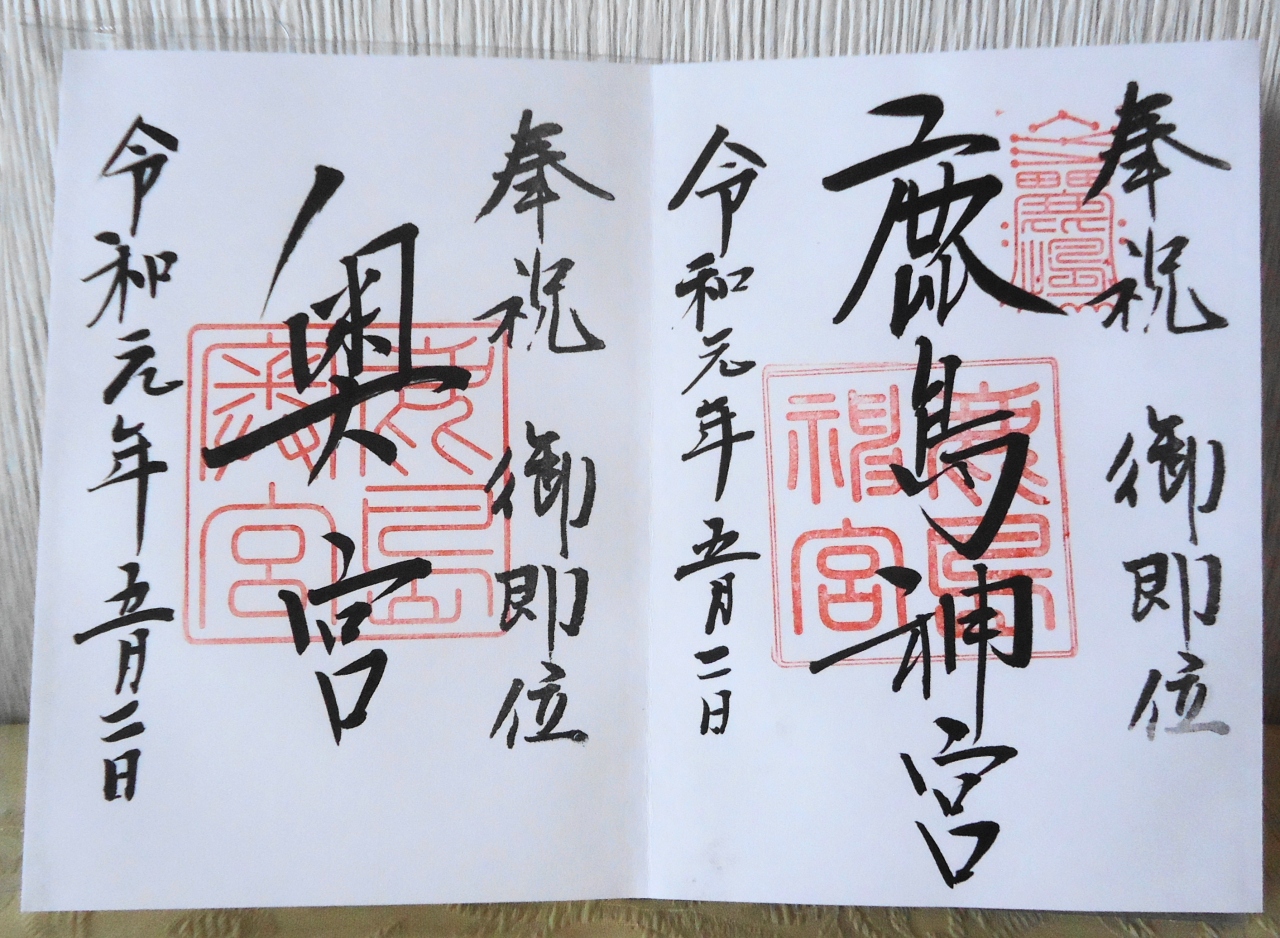 奉祝 御即位
鹿島神宮
令和元年五月二日
鹿島神宮
奉祝 御即位
奥宮
令和元年五月二日
鹿島奥宮